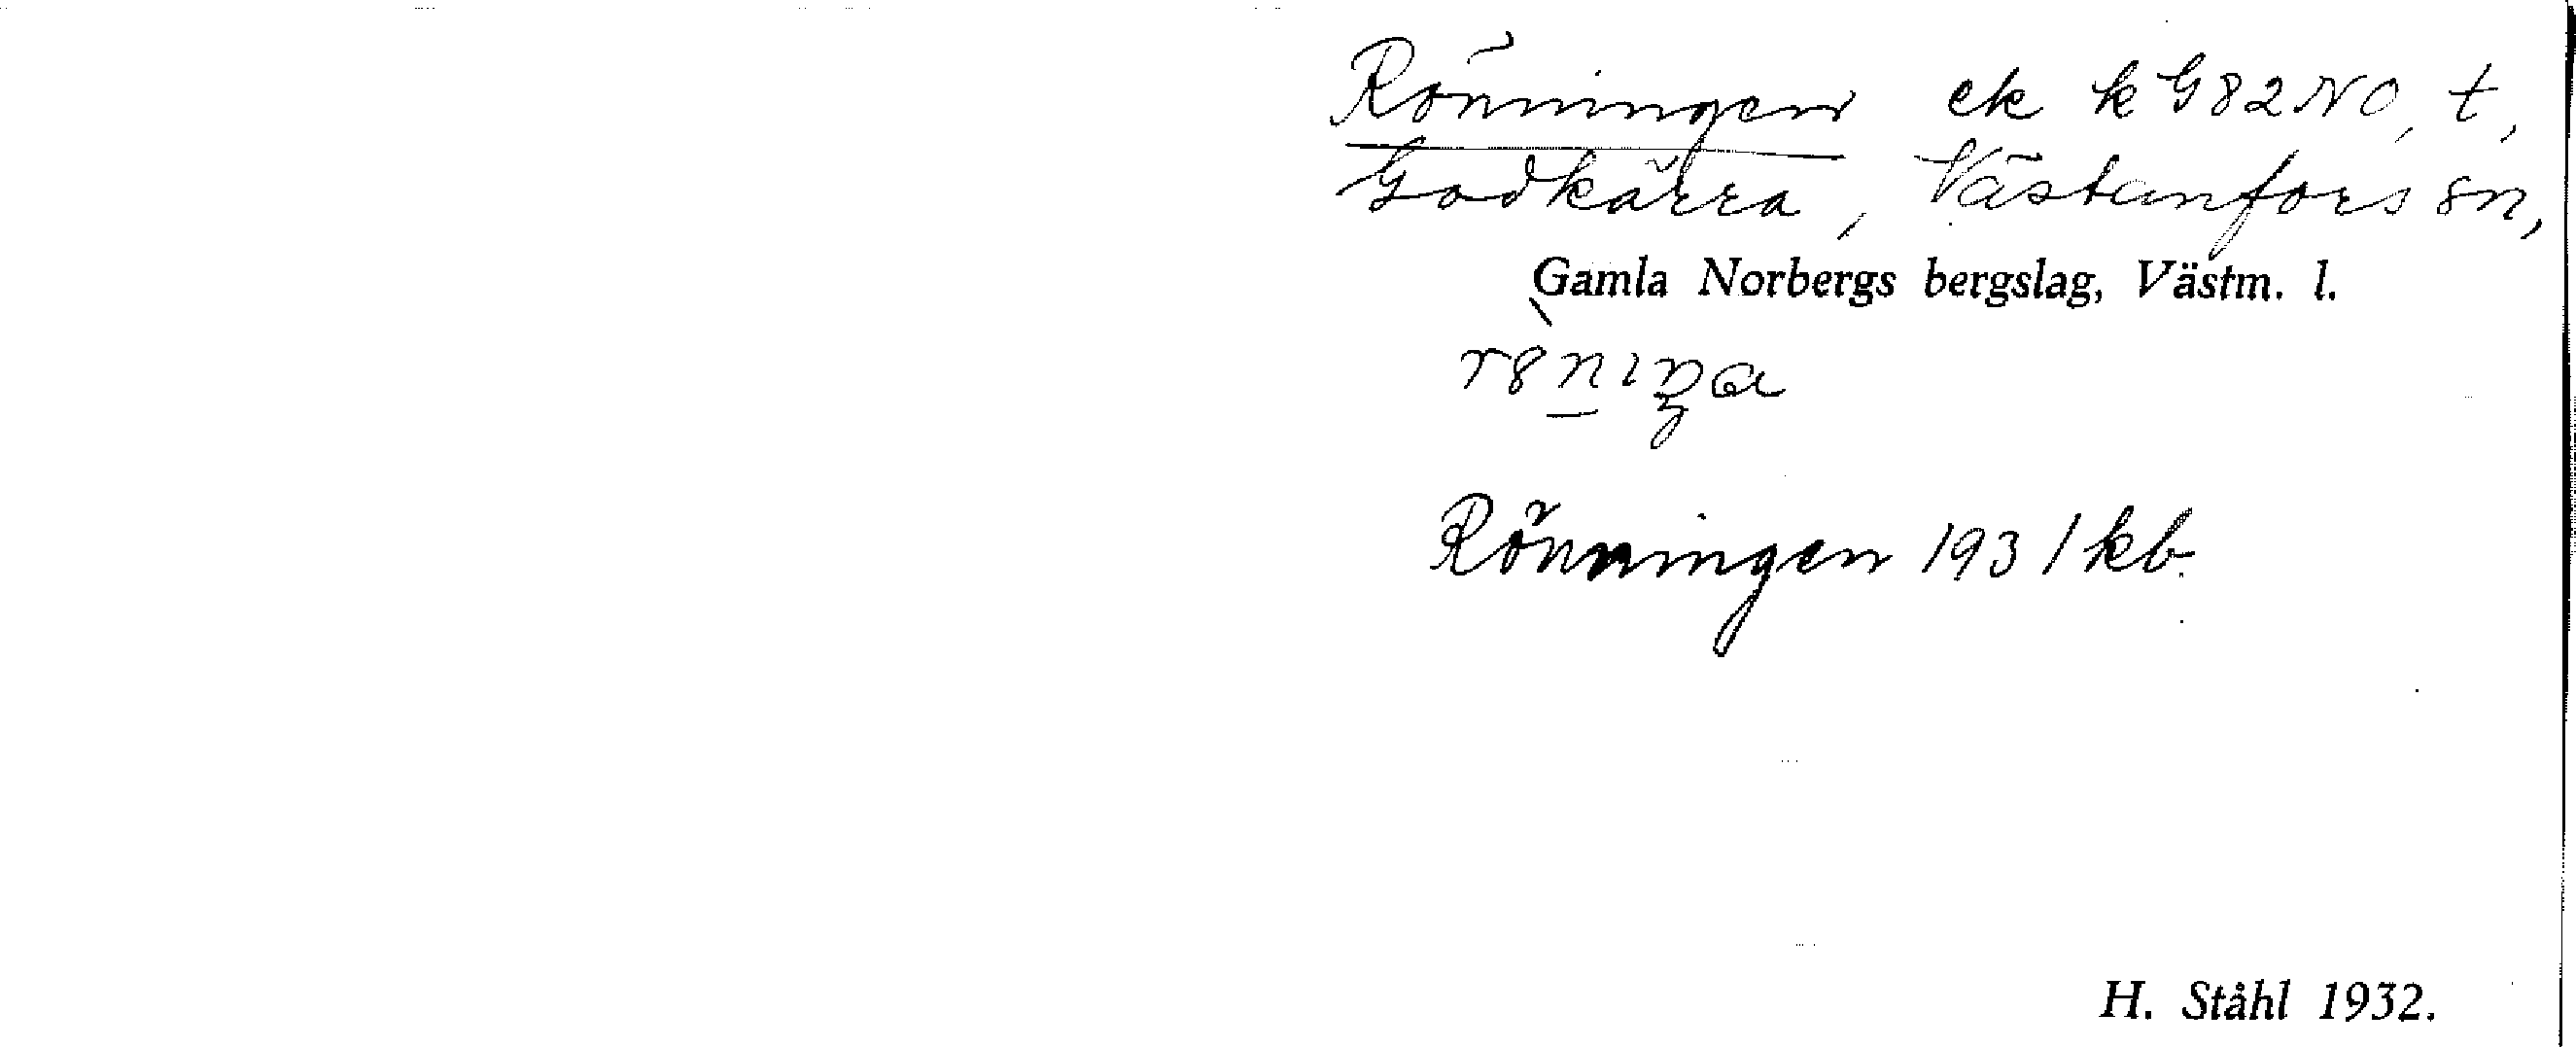 Rönningen ek k G82NO, t,
Godkärra, Västanfors sn,
Gamla Norbergs bergslag, Västm. l.
Rönningen 1931 kb.
H. Ståhl 1932.